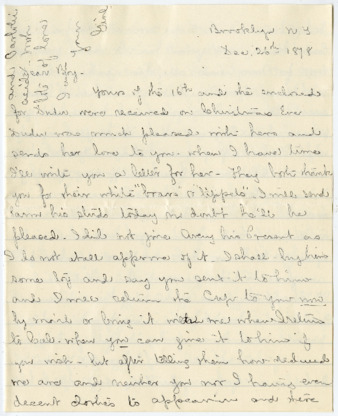 Brooklyn N Y
Dec. 26th 1898
My Dear Boy.
Yours of the 16th and the enclosed
for were received on Christmas Eve
was much pleased with hers and
sends her love to you. when I have time
I'll write you a letter for her. They both thank
you for their white "boas" & tippets. I will send
his studs today no doubt he'll be
pleased. I did not give his Present as
I do not at all approve of it. I shall buy him
some toy and say you sent it to him
and I will return the Cup to you now
by mail or bring it with me when I return
to Cala. when you can give it to him if
you wish. but after telling them how reduced
we are and neither you nor I having even
decent clothes to appear in and there